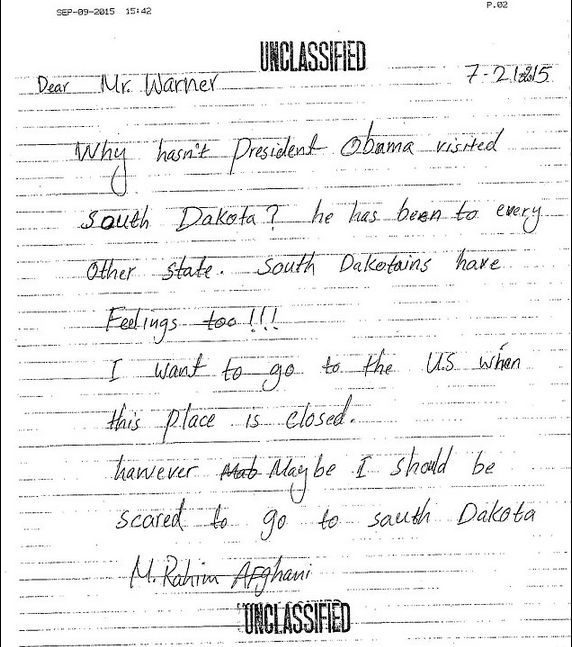 SEP-09-2015 15:42 P.02
UNCLASSIFIED
Dear Mr. Warner 7-21-2015
Why hasn't president Obama visited
south Dakota? he has been to every
other state. South Dakotains have
Feelings too!!!
I want to go to the U.S when
this place is closed.
however Mab Maybe I should be
scared to go to sauth Dakota
M. Rahim Afghani
UNCLASSIFIED